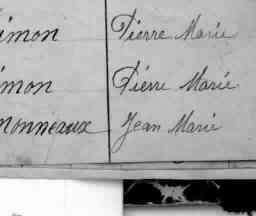 imon Pierre Marie
imon Pierre Marie
monneaux Jean Marie